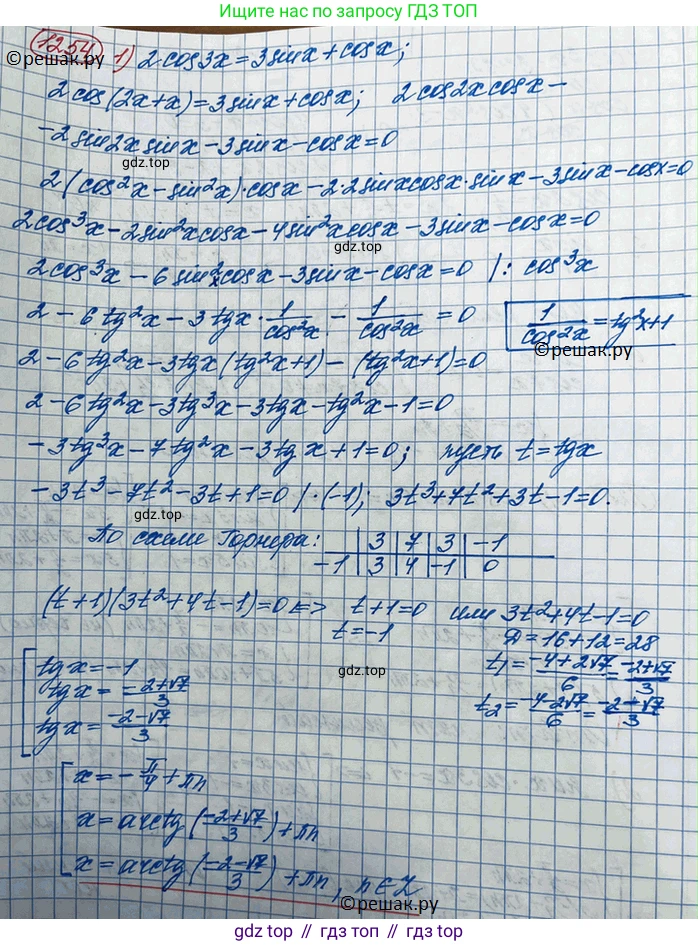 Ищите ответы по запросу ГДЗ ТОП
1254 1) 2cos3x=3sinx+cosx;
©решак.ру
2cos(2x+x)=3sinx+cosx; 2cos2xcosx-
-2sin2xsinx-3sinx-cosx=0
gdz.top
2(cos²x-sin²x)·cosx-2·2sinxcosx·sinx-3sinx-cosx=0
2cos³x-2sin²xcosx-4sin²xcosx-3sinx-cosx=0
gdz.top
2cos³x-6sin²xcosx-3sinx-cosx=0 |: cos³x
2-6tg²x-3tgx·1/cos²x-1/cos²x=0 1/cos²x=tg²x+1
©решак.ру
2-6tg²x-3tgx(tg²x+1)-(tg²x+1)=0
2-6tg²x-3tg³x-3tgx-tg²x-1=0
-3tg³x-7tg²x-3tgx+1=0; пусть t=tgx
-3t³-7t²-3t+1=0 |·(-1); 3t³+7t²+3t-1=0.
gdz.top
По схеме Горнера: | 3 | 7 | 3 | -1
-1 | 3 | 4 | -1 | 0
(t+1)(3t²+4t-1)=0 <=> t+1=0 или 3t²+4t-1=0
t=-1 D=16+12=28
tgx=-1 t₁=(-4+2√7)/6=(-2+√7)/3
gdz.top
tgx=(-2+√7)/3
tgx=(-2-√7)/3 t₂=(-4-2√7)/6=(-2-√7)/3
x=-π/4+πn
x=arctg((-2+√7)/3)+πn
x=arctg((-2-√7)/3)+πn, n∈Z
©решак.ру
gdz.top // gdz.top // gdz.top // gdz.top